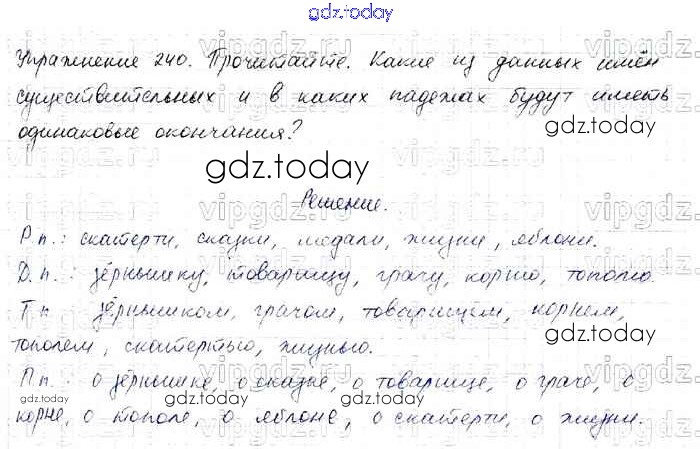 gdz.today
Упражнение 240. Прочитайте. Какие из данных имён
существительных и в каких падежах будут иметь
одинаковые окончания?
gdz.today
gdz.today
Решение.
Р.п.: скатерти, сказки, медали, жизни, яблони.
Д.п.: зёрнышку, товарищу, грачу, корню, тополю.
Т.п. зёрнышком, грачом, товарищем, корнем,
gdz.today
тополем, скатертью, жизнью.
П.п. о зёрнышке, о сказке, о товарище, о граче, о
gdz.today
корне, о тополе, о яблоне, о скатерти, о жизни.
gdz.today
vipgdz.ru